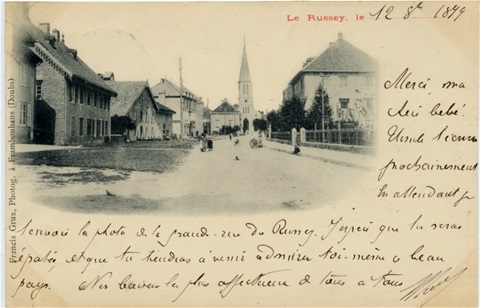 Le Russey, le 12 8bre 1899
Merci ma
bébé.
prochainement
En attendant je
t'envoie la photo de la grande-rue du Russey. J'espère que tu seras
épatée, et que tu viendras à venir admirer toi-même ce beau
pays. Nos baisers les plus affectueux de tous à tous
Francis Grux, Photog. à Frambouhans (Doubs)